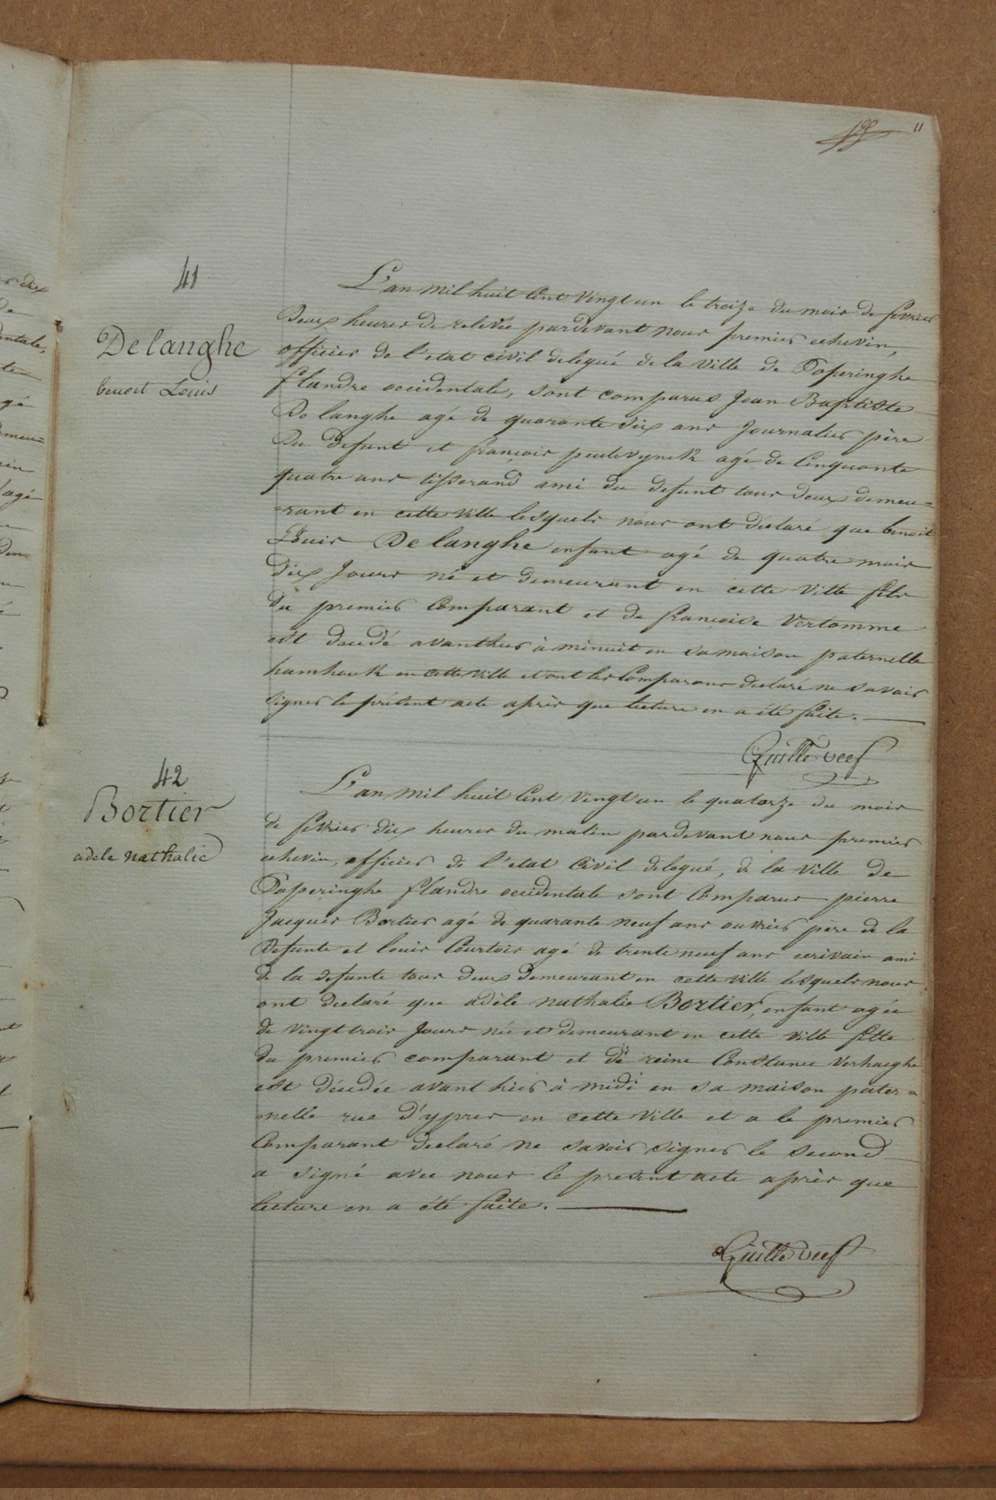 11
41
Delanghe
benoit Louis
L'an mil huit Cent vingt un le treize du mois de fevrier
deux heures de relevée pardevant nous premier echevin,
officier de l'etat civil delegué de la ville de Poperinghe
flandre occidentale, sont comparus Jean Baptiste
De langhe agé de quarante dix ans Journalier père
du defunt et françois agé de Cinquante
quatre ans tisserand ami du defunt tous deux demeu=
=rant en cette ville lesquels nous ont déclaré que benoit
Louis Delanghe enfant agé de quatre mois
dix Jours né et demeurant en cette ville fils
du premier Comparant et de françoise Vertomme
est decedé avanthier à minuit en sa maison paternelle
hamhouk en cette ville et ont les Comparans declaré ne savoir
signer le présent acte après que lecture en a été faite.
42
Bortier
adele nathalie
L'an mil huit Cent vingt un le quatorze du mois
de fevrier dix heures du matin pardevant nous premier
echevin, officier de l'etat Civil delegué, de la ville de
Poperinghe flandre occidentale sont Comparus pierre
Jacques Bortier agé de quarante neuf ans ouvrier père de la
defunte et louis Courtois agé de trente neuf ans ecrivain ami
de la defunte tous deux demeurant en cette ville lesquels nous
ont declaré que adèle nathalie Bortier, enfant agée
de vingt trois Jours née et demeurant en cette ville fille
du premier comparant et de reine Constance Verhaeghe
est décedée avant hier à midi en sa maison pater=
=nelle rue d'ypres en cette ville et a le premier
Comparant declaré ne savoir signer le second
a signé avec nous le present acte après que
lecture en a été faite.